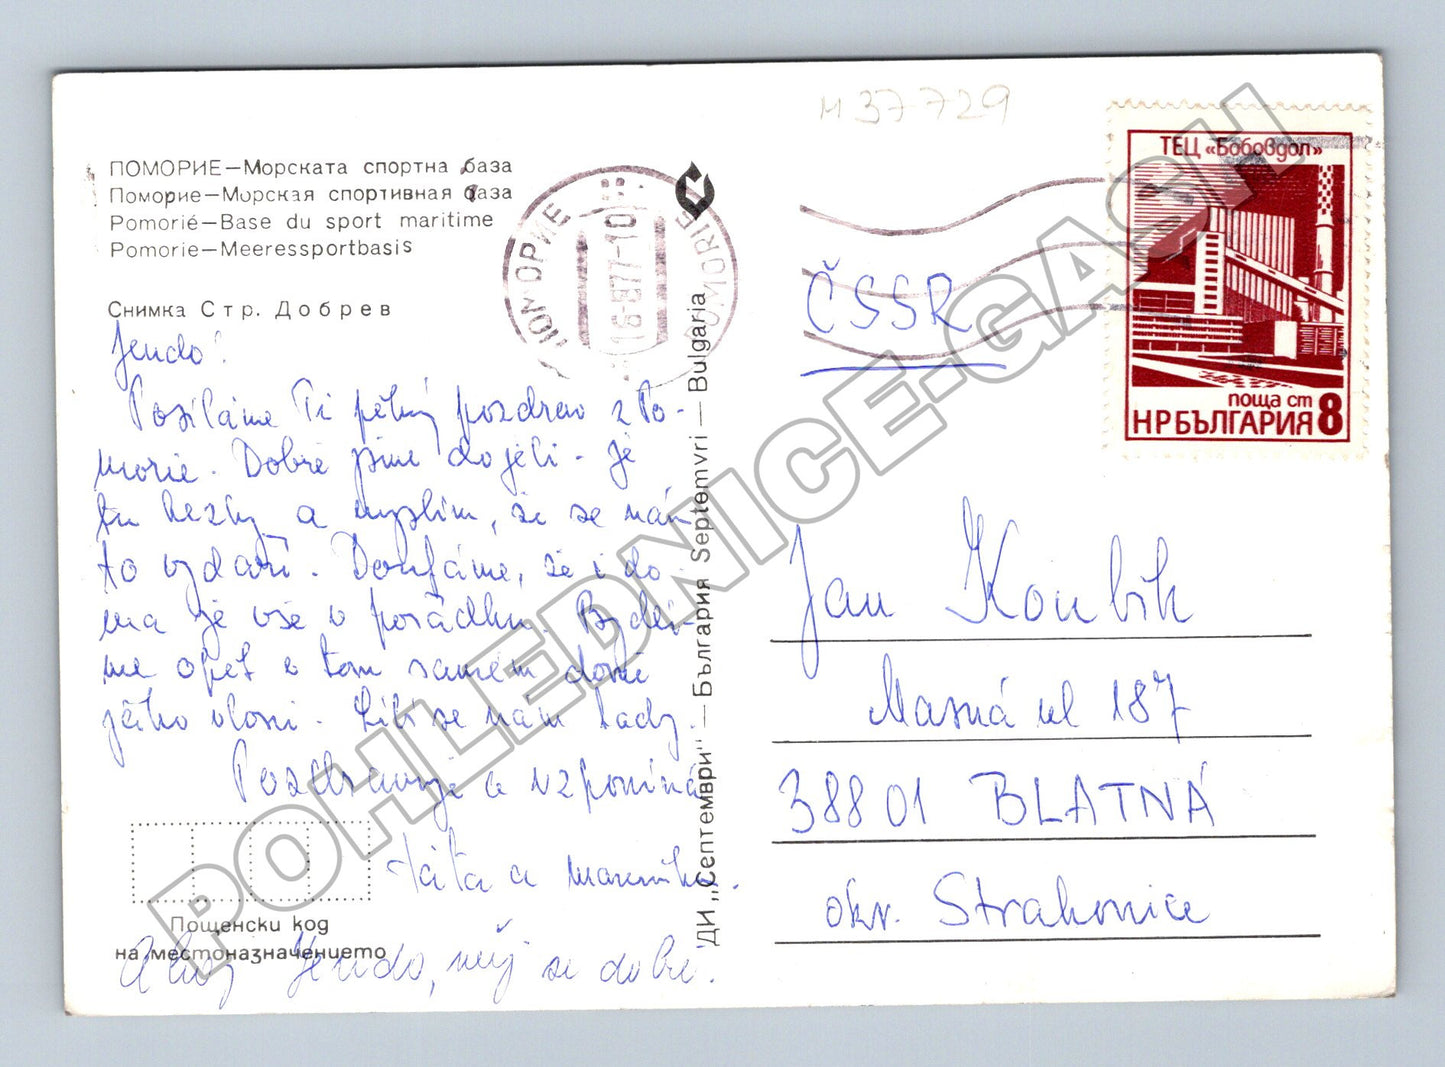 M 37729
ПОМОРИЕ—Морската спортна база
Поморие—Морская спортивная база
Pomorié—Base du sport maritime
Pomorie—Meeressportbasis
Снимка Стр. Добрев
Jendo!
Posíláme Ti pěkný pozdrav z Po-
morie. Dobře jsme dojeli. Je
tu hezky a myslím, že se nám
to vydaří. Doufáme, že i do-
ma je vše v pořádku. Budeš-
me opět o tom samém domě
jako vloni. Líbí se nám tady.
Pozdravuje a vzpomíná
táta a maminka.
Ahoj Jendo, měj se dobře.
Пощенски код
на местоназначението
ДИ „Септември" — България Septemvri — Bulgaria
ПОМОРИЕ
POMORIE
18-8 77-10
ТЕЦ «Бобовдол»
поща ст
НР БЪЛГАРИЯ 8
ČSSR
Jan Koubík
Masná ul 187
38801 BLATNÁ
okr. Strakonice
POHLEDNICE-GASH